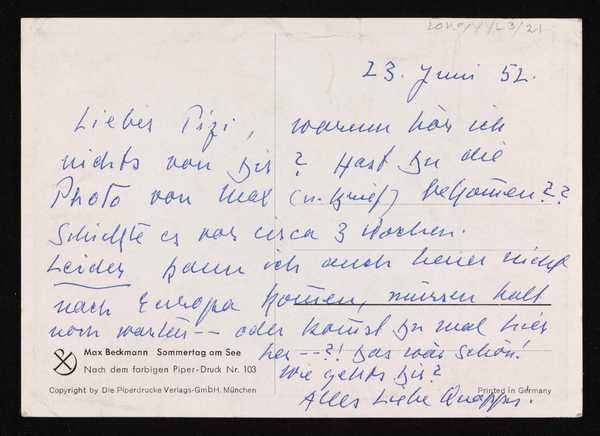 23. Juni 52.
Lieber Pizi, warum hör ich
nichts von Dir? Hast Du die
Photo von Max (u. Brief) bekommen??
Schickte es vor circa 3 Wochen.
Leider kann ich auch heuer nicht
nach Europa kommen, müssen halt
noch warten -- oder kommst Du mal hier
her --?! Das wär schön!
Wie gehts Dir?
Alles Liebe Quappi.
Max Beckmann Sommertag am See
Nach dem farbigen Piper-Druck Nr. 103
Copyright by Die Piperdrucke Verlags-GmbH. München
Printed in Germany